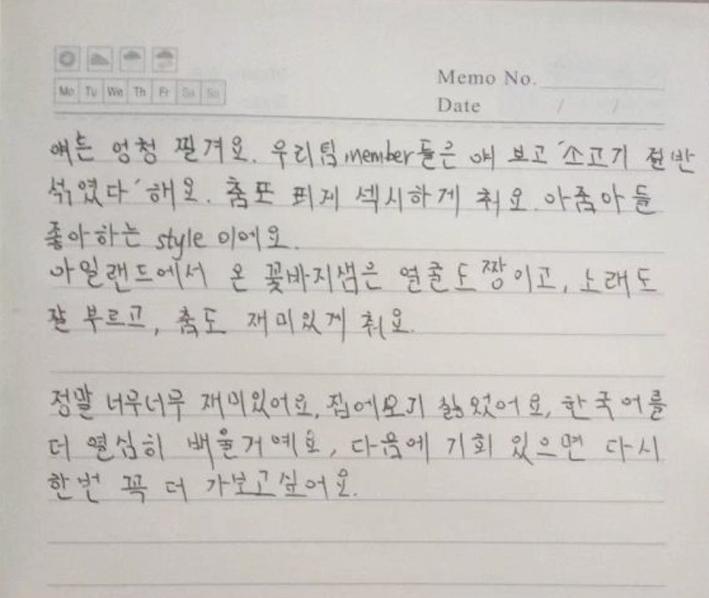 Mo Tu We Th Fr Sa Su
Memo No.
Date / /
얘는 엉청 찔겨요. 우리팀 member들은 얘 보고 '소고기 절반
섞였다' 해요. 춤또 되게 섹시하게 춰요. 아줌아들
좋아하는 style 이에요.
아일랜드에서 온 꽃바지샘은 얼굴도 짱이고, 노래도
잘 부르고, 춤도 재미있게 춰요.
정말 너무너무 재미있어요, 집에오기 싫었어요, 한국어를
더 열심히 배울거예요, 다음에 기회 있으면 다시
한번 꼭 더 가보고싶어요.